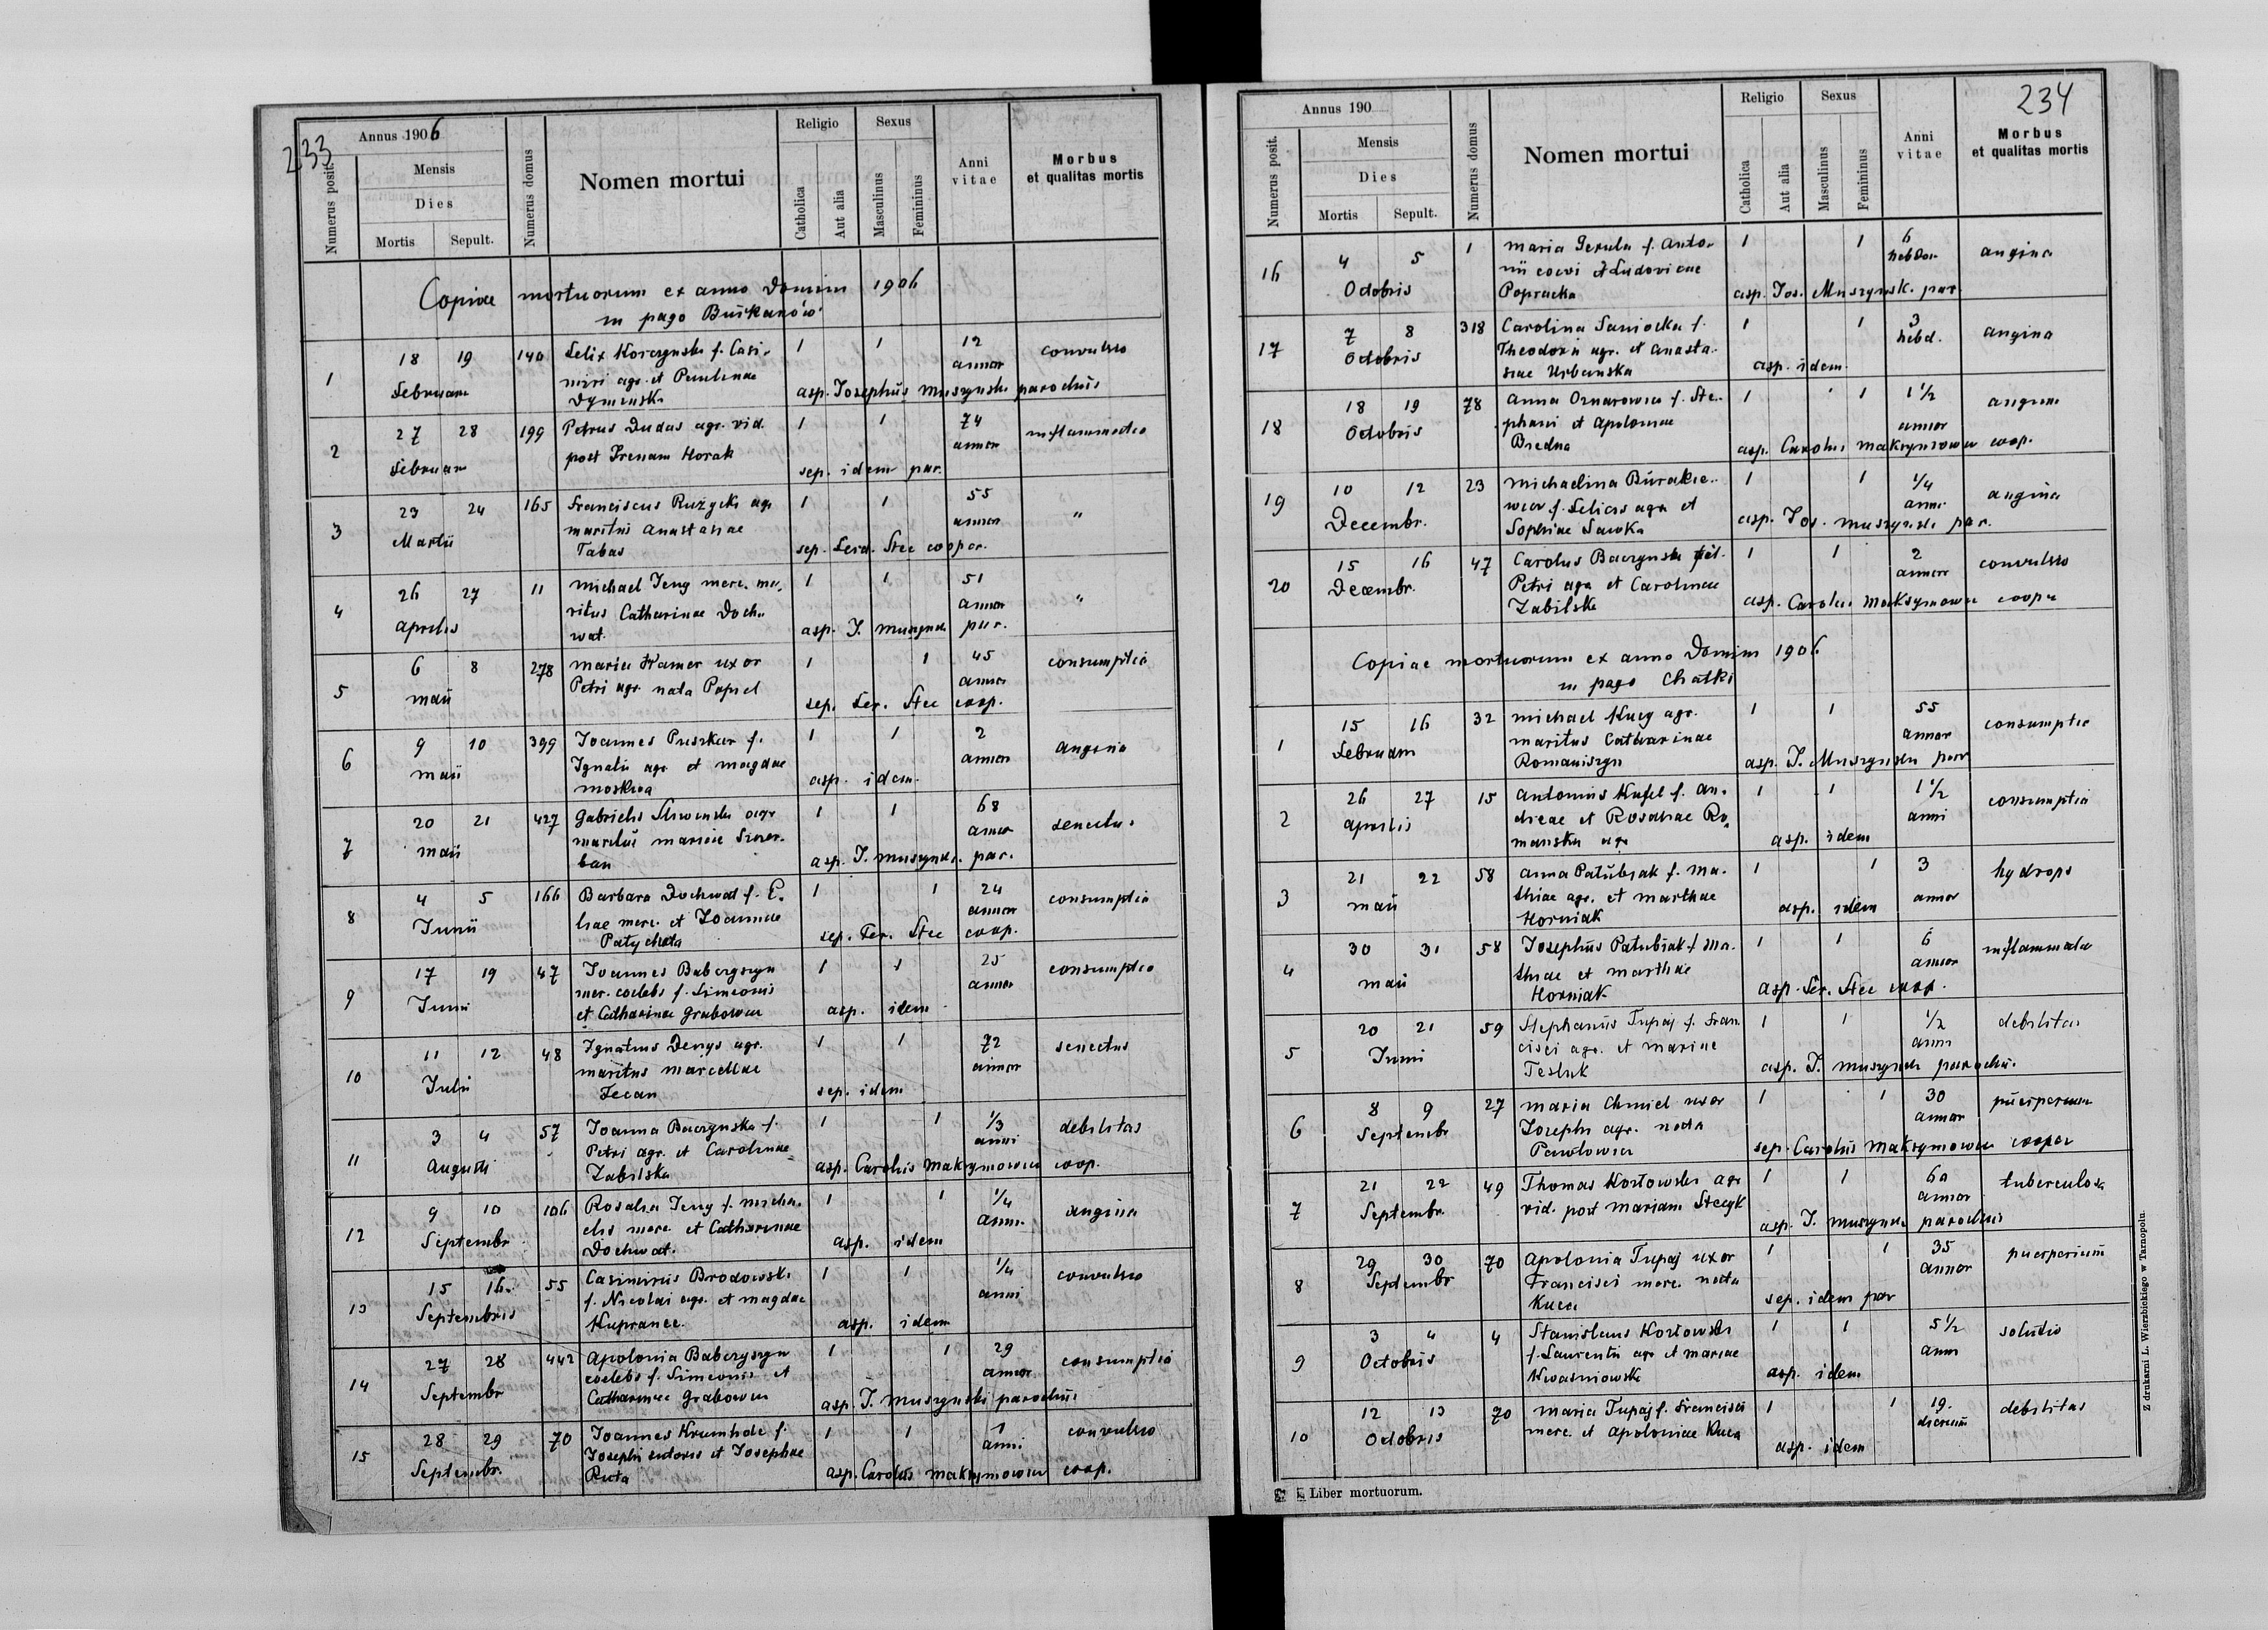 233
Annus 1906
Numerus posit.
Mensis
Dies
Mortis Sepult.
Numerus domus
Nomen mortui
Religio
Catholica
Aut alia
Sexus
Masculinus
Femininus
Anni vitae
Morbus
et qualitas mortis
Copiae mortuorum ex anno Domini 1906
in pago Buřkanów
1 18 19 140 Felix Korczynski f. Casi- 1 1 12 convulsio
Februarii miri agr. et Paulinae annor
Dyminski asp. Josephus Muszynski parochus
2 27 28 199 Petrus Dudas agr. vid. 1 1 74 inflammatio
Februarii post Irenam Horak annor
sep. idem par.
3 23 24 165 Franciscus Ružycki agr 1 1 55 "
Martii maritus Anastasiae annor
Tabas sep. Ferd. Stec cooper.
4 26 27 11 Michael Jeny merc. ma- 1 1 51 "
Aprilis ritus Catharinae Doch- annor
wat. asp. J. Muszynski par.
5 6 8 278 Maria Kamer uxor 1 1 45 consumptio
Maii Petri agr. nata Popiel annor
sep. Fer. Stec coop.
6 9 10 399 Joannes Puszkar f. 1 1 2 angina
Maii Ignatii agr. et Magdae annor
Moskwa asp. idem.
7 20 21 427 Gabrielis agr 1 1 68 senectus
Maii maritus Mariae annor
ban asp. J. Muszynski. par.
8 4 5 166 Barbara Dochwat f. E- 1 1 24 consumptio
Junii liae merc. et Joannae annor
Patycheta sep. Fer. Stec coop.
9 17 19 47 Joannes Babczyszyn 1 1 25 consumptio
Junii mer. coelebs f. Simeonis annor
et Catharinae Grabowicz asp. idem
10 11 12 48 Ignatius Denys agr. 1 1 72 senectus
Julii maritus Marcellae annor
Fecan sep. idem
11 3 4 57 Joanna Baczynska f. 1 1 1/3 debilitas
Augusti Petri agr. et Carolinae anni
Zabilska asp. Carolus Maksymowicz coop.
12 9 10 106 Rosalia Jeny f. Micha- 1 1 1/4 angina
Septembr elis merc. et Catharinae anni
Dochwat. asp. idem
13 15 16. 55 Casimirus Brodowski 1 1 1/4 convulsio
Septembris f. Nicolai agr. et Magdae anni
Kupranec. asp. idem
14 27 28 442 Apolonia Babczyszyn 1 1 29 consumptio
Septembr coelebs f. Simeonis et annor
Catharinae Grabowicz asp. J. Muszynski parochus
15 28 29 70 Joannes Krumholc f. 1 1 1 convulsio
Septembr. Josephi sutoris et Josephae anni
Ruta asp. Carolus Maksymowicz coop.
234
Annus 190
Numerus posit.
Mensis
Dies
Mortis Sepult.
Numerus domus
Nomen mortui
Religio
Catholica
Aut alia
Sexus
Masculinus
Femininus
Anni vitae
Morbus
et qualitas mortis
16 4 5 1 Maria Gerula f. Anto- 1 1 6 angina
Octobris nii et Ludovicae hebdom
Popracka asp. Jos. Muszynsk. par.
17 7 8 318 Carolina Saniocka f. 1 1 3 angina
Octobris Theodori agr. et Anasta- hebd.
siae Urbanska asp. idem.
18 18 19 78 Anna f. Ste- 1 1 1 1/2 angina
Octobris phani et Apoloniae annor
Biedna asp. Carolus Maksymowicz coop.
19 10 12 23 Michaelina Burakie- 1 1 1/4 angina
Decembr. wicz f. Felicis agr et anni
Sophiae Sawka asp. Jos. Muszynski par.
20 15 16 47 Carolus Baczynski fil. 1 1 2 convulsio
Decembr. Petri agr et Carolinae annor
Zabilska asp. Carolus Maksymowicz coope
Copiae mortuorum ex anno Domini 1906
in pago Chatki
1 15 16 32 Michael Kucy agr. 1 1 55 consumptio
Februarii maritus Catharinae annor
Romaniszyn asp. J. Muszynski par
2 26 27 15 Antonius Kufel f. An- 1 1 1 1/2 consumptio
Aprilis dreae et Rosaliae Ro- anni
manska agr asp. idem
3 21 22 58 Anna Patubiak f. Ma- 1 1 3 hydrops
Maii thiae agr. et Marthae annor
Horniak asp. idem
4 30 31 58 Josephus Patubiak f. Ma- 1 1 6 inflammatio
Maii thiae et Marthae annor
Horniak asp. Fer. Stec coop.
5 20 21 59 Stephanus Tupaj f. Fran- 1 1 1/2 debilitas
Junii cisci agr. et Mariae anni
Tesluk asp. J. Muszynski parochus.
6 8 9 27 Maria Chmiel uxor 1 1 30 puerperium
Septembr Josephi agr. nata annor
Pawlowicz sep. Carolus Maksymowicz cooper
7 21 22 49 Thomas Kozlowski agr 1 1 60 tuberculosa
Septembr. vid. post Mariam Stecyk annor
asp. J. Muszynski parochus
8 29 30 70 Apolonia Tupaj uxor 1 1 35 puerperium
Septembr Francisci merc. nata annor
Kuca sep. idem par
9 3 4 4 Stanislaus Kozlowski 1 1 5 1/2 solutio
Octobris f. Laurentii agr et Mariae anni
Kwasniowska asp. idem
10 12 13 70 Maria Tupaj f. Francisci 1 1 19. debilitas
Octobris merc. et Apoloniae Kuca dierum
asp. idem
Liber mortuorum.
Z drukarni L. Wierzbickiego w Tarnopolu.